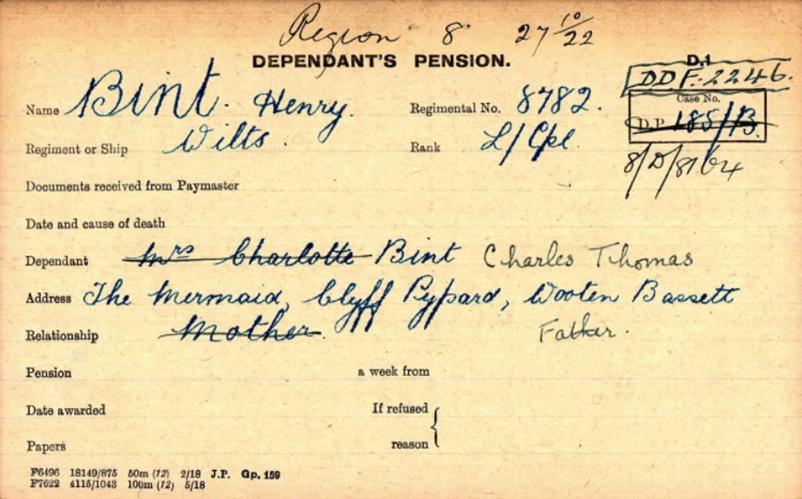 Region 8 27 10/22
DEPENDANT'S PENSION.
D.1
DDF:2246.
Name Bint. Henry. Regimental No. 8782.
Case No.
D.P. 185/B.
Regiment or Ship Wilts. Rank L/Cpl
8/D/8164
Documents received from Paymaster
Date and cause of death
Dependant Mrs Charlotte Bint Charles Thomas
Address The Mermaid, Clyff Pypard, Wooten Bassett
Relationship Mother. Father.
Pension a week from
Date awarded If refused
Papers reason
F6496 18149/875 50m (12) 2/18 J.P. Gp. 159
F7622 4115/1043 100m (12) 5/18